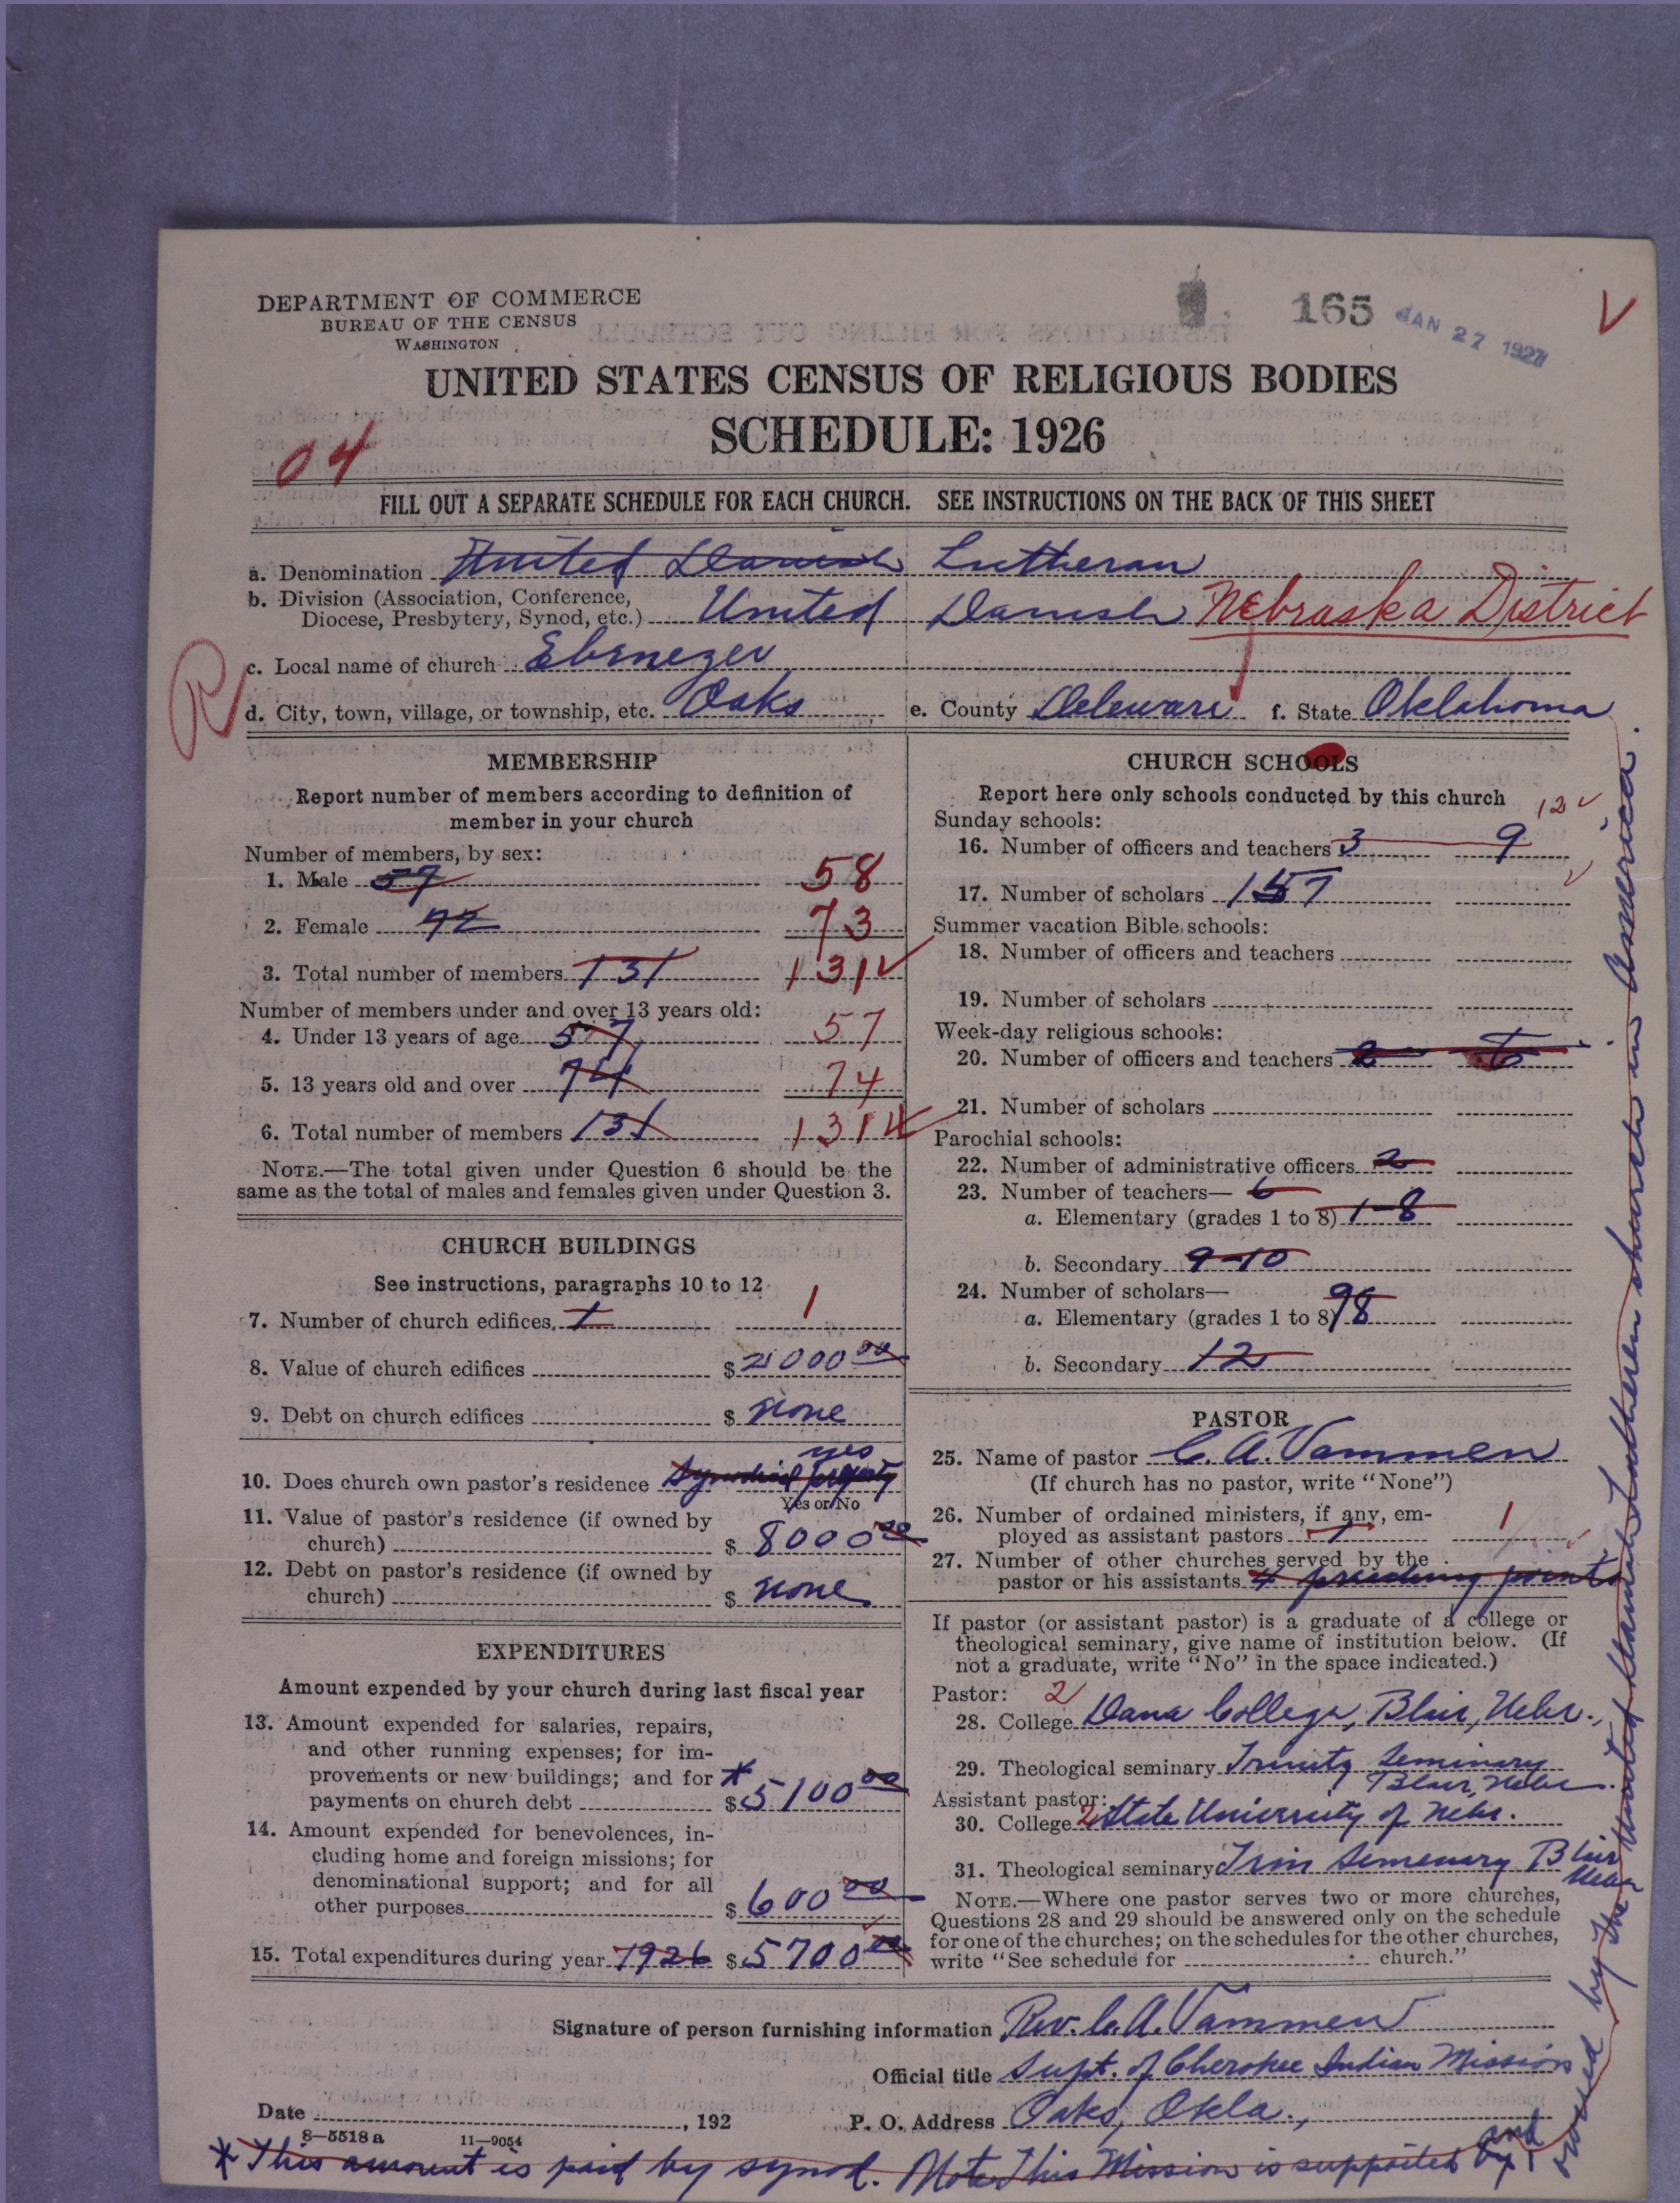 DEPARTMENT OF COMMERCE
BUREAU OF THE CENSUS
WASHINGTON
165 JAN 27 1927
UNITED STATES CENSUS OF RELIGIOUS BODIES
SCHEDULE: 1926
04
FILL OUT A SEPARATE SCHEDULE FOR EACH CHURCH. SEE INSTRUCTIONS ON THE BACK OF THIS SHEET
a. Denomination United Danish Lutheran
b. Division (Association, Conference,
Diocese, Presbytery, Synod, etc.) United Danish Nebraska District
R
c. Local name of church Ebenezer
d. City, town, village, or township, etc. Oaks e. County Deleware f. State Oklahoma
MEMBERSHIP
Report number of members according to definition of
member in your church
Number of members, by sex:
1. Male 57 58
2. Female 72 73
3. Total number of members 131 131
Number of members under and over 13 years old:
4. Under 13 years of age 57 57
5. 13 years old and over 74 74
6. Total number of members 131 131
NOTE.—The total given under Question 6 should be the
same as the total of males and females given under Question 3.
CHURCH BUILDINGS
See instructions, paragraphs 10 to 12
7. Number of church edifices 1 1
8. Value of church edifices $ 2000 00
9. Debt on church edifices $ none
yes
10. Does church own pastor's residence Synodical property
Yes or No
11. Value of pastor's residence (if owned by
church) $ 8000 00
12. Debt on pastor's residence (if owned by
church) $ none
EXPENDITURES
Amount expended by your church during last fiscal year
13. Amount expended for salaries, repairs,
and other running expenses; for im-
provements or new buildings; and for *
payments on church debt $ 5100 00
14. Amount expended for benevolences, in-
cluding home and foreign missions; for
denominational support; and for all
other purposes $ 600 00
15. Total expenditures during year 1926 $ 5700 00
CHURCH SCHOOLS
Report here only schools conducted by this church
12
Sunday schools:
16. Number of officers and teachers 3 9
17. Number of scholars 157
Summer vacation Bible schools:
18. Number of officers and teachers
19. Number of scholars
Week-day religious schools:
20. Number of officers and teachers 2 6
21. Number of scholars
Parochial schools:
22. Number of administrative officers 2
23. Number of teachers— 6
a. Elementary (grades 1 to 8) 1-8
b. Secondary 9-10
24. Number of scholars—
a. Elementary (grades 1 to 8) 98
b. Secondary 12
PASTOR
25. Name of pastor C. A. Vammen
(If church has no pastor, write "None")
26. Number of ordained ministers, if any, em-
ployed as assistant pastors 1 1
27. Number of other churches served by the
pastor or his assistants 4 preaching points
If pastor (or assistant pastor) is a graduate of a college or
theological seminary, give name of institution below. (If
not a graduate, write "No" in the space indicated.)
Pastor: 2
28. College Dana College, Blair, Nebr.
29. Theological seminary Trinity Seminary
Blair, Nebr.
Assistant pastor:
30. College 2 State University of Nebr.
31. Theological seminary Trin Semenary Blair
Nebr
NOTE.—Where one pastor serves two or more churches,
Questions 28 and 29 should be answered only on the schedule
for one of the churches; on the schedules for the other churches,
write "See schedule for church."
Signature of person furnishing information Rev. C. A. Vammen
Official title Supt. of Cherokee Indian Mission
Date , 192 P. O. Address Oaks, Okla.,
8—5518 a 11—9054
* This amount is paid by synod. Note This Mission is supported and
by the United Danish Lutheran church in America.